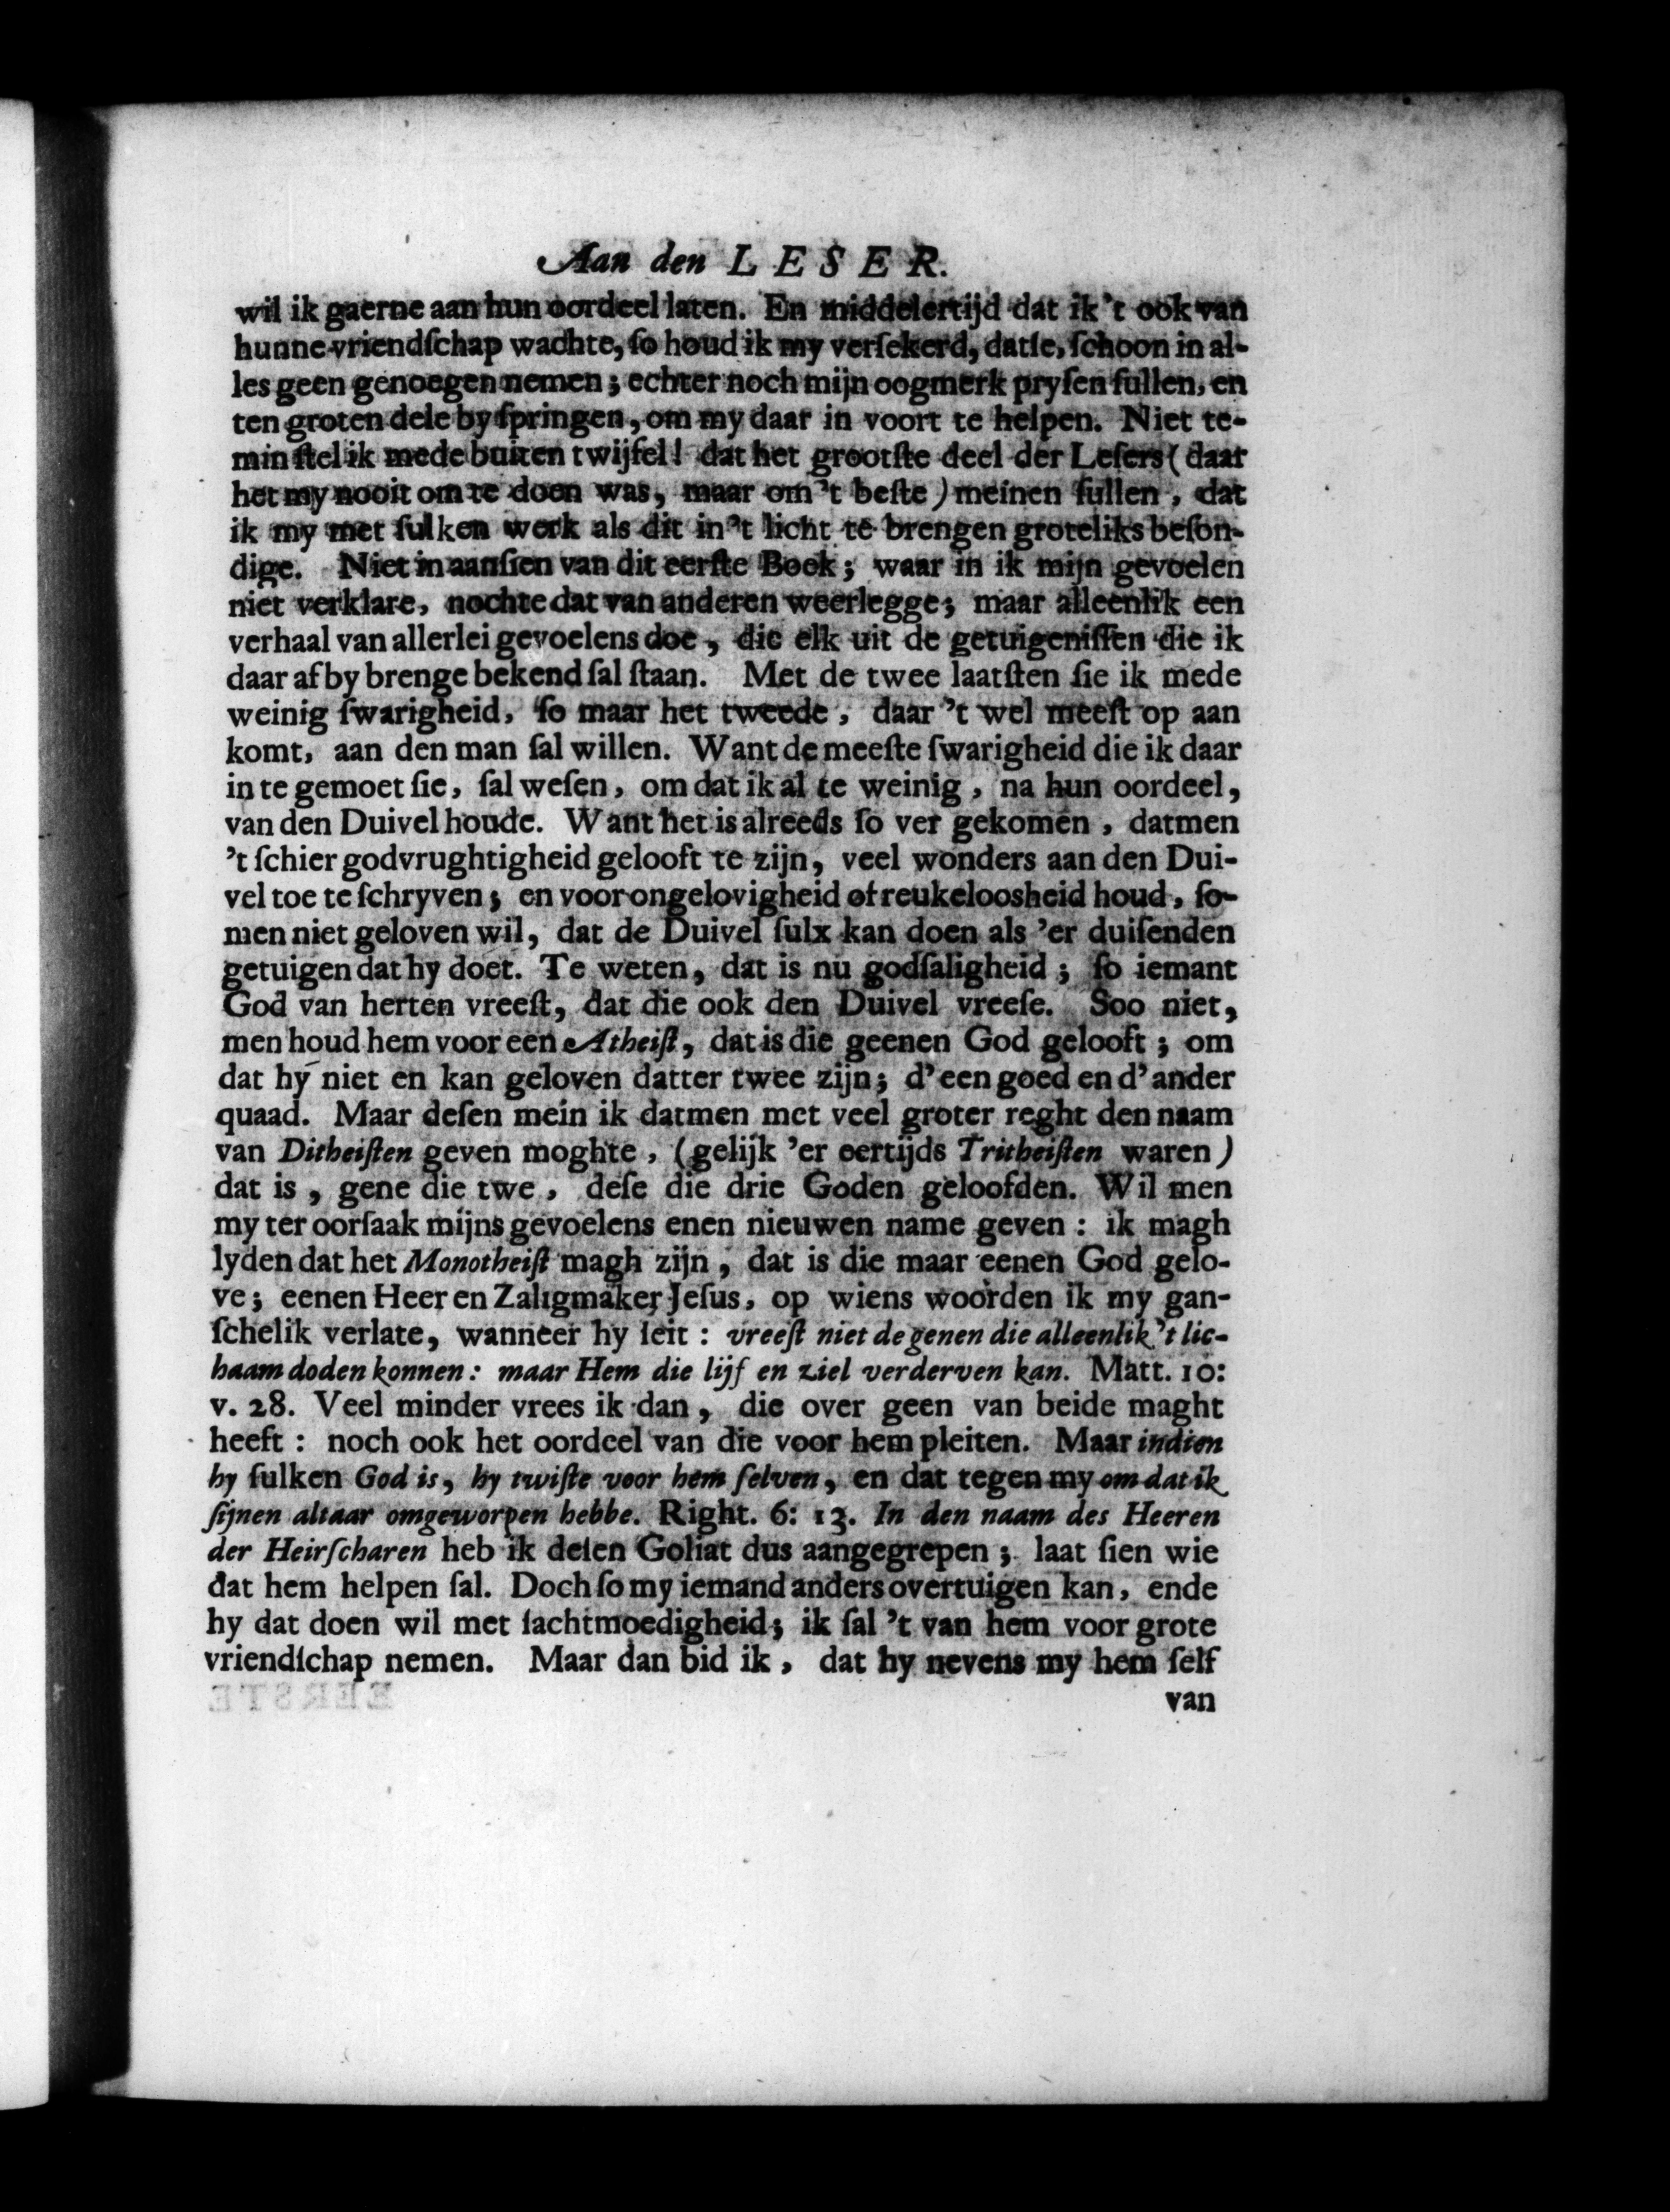 Aan den LESER.
wil ik gaerne aan hun oordeel laten. En middelertijd dat ik 't ook van
hunne vriendſchap wachte, ſo houd ik my verſekerd, datſe, ſchoon in al-
les geen genoegen nemen; echter noch mijn oogmerk pryſen ſullen, en
ten groten dele by ſpringen, om my daar in voort te helpen. Niet te-
min ſtel ik mede buiten twijfel! dat het grootſte deel der Leſers (daar
het my nooit om te doen was, maar om 't beſte) meinen ſullen, dat
ik my met ſulken werk als dit in 't licht te brengen groteliks beſon-
dige. Niet in aanſien van dit eerſte Boek; waar in ik mijn gevoelen
niet verklare, nochte dat van anderen weerlegge; maar alleenlik een
verhaal van allerlei gevoelens doe, die elk uit de getuigeniſſen die ik
daar af by brenge bekend ſal ſtaan. Met de twee laatſten ſie ik mede
weinig ſwarigheid, ſo maar het tweede, daar 't wel meeſt op aan
komt, aan den man ſal willen. Want de meeſte ſwarigheid die ik daar
in te gemoet ſie, ſal weſen, om dat ik al te weinig, na hun oordeel,
van den Duivel houde. Want het is alreeds ſo ver gekomen, datmen
't ſchier godvrughtigheid gelooft te zijn, veel wonders aan den Dui-
vel toe te ſchryven; en voor ongelovigheid of reukeloosheid houd, ſo-
men niet geloven wil, dat de Duivel ſulx kan doen als 'er duiſenden
getuigen dat hy doet. Te weten, dat is nu godſaligheid; ſo iemant
God van herten vreeſt, dat die ook den Duivel vreeſe. Soo niet,
men houd hem voor een Atheiſt, dat is die geenen God gelooft; om
dat hy niet en kan geloven datter twee zijn; d'een goed en d'ander
quaad. Maar deſen mein ik datmen met veel groter reght den naam
van Ditheiſten geven moghte, (gelijk 'er eertijds Tritheiſten waren)
dat is, gene die twe, deſe die drie Goden geloofden. Wil men
my ter oorſaak mijns gevoelens enen nieuwen name geven: ik magh
lyden dat het Monotheiſt magh zijn, dat is die maar eenen God gelo-
ve; eenen Heer en Zaligmaker Jeſus, op wiens woorden ik my gan-
ſchelik verlate, wanneer hy ſeit: vreeſt niet de genen die alleenlik 't lic-
haam doden konnen: maar Hem die lijf en ziel verderven kan. Matt. 10:
v. 28. Veel minder vrees ik dan, die over geen van beide maght
heeft: noch ook het oordeel van die voor hem pleiten. Maar indien
hy ſulken God is, hy twiſte voor hem ſelven, en dat tegen my om dat ik
ſijnen altaar omgeworpen hebbe. Right. 6: 13. In den naam des Heeren
der Heirſcharen heb ik deſen Goliat dus aangegrepen; laat ſien wie
dat hem helpen ſal. Doch ſo my iemand anders overtuigen kan, ende
hy dat doen wil met ſachtmoedigheid; ik ſal 't van hem voor grote
vriendſchap nemen. Maar dan bid ik, dat hy nevens my hem ſelf
van